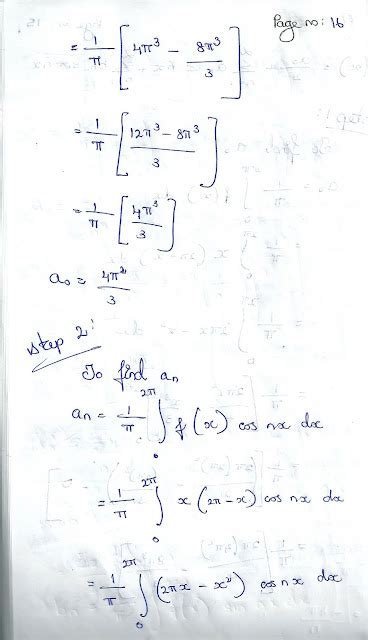 Page no: 16
= 1/π [ 4π³ - 8π³/3 ]
= 1/π [ (12π³ - 8π³)/3 ]
= 1/π [ 4π³/3 ]
a₀ = 4π²/3
step 2:
To find aₙ
aₙ = 1/π ∫₀^2π f(x) cos nx dx
= 1/π ∫₀^2π x(2π - x) cos nx dx
= 1/π ∫₀^2π (2πx - x²) cos nx dx